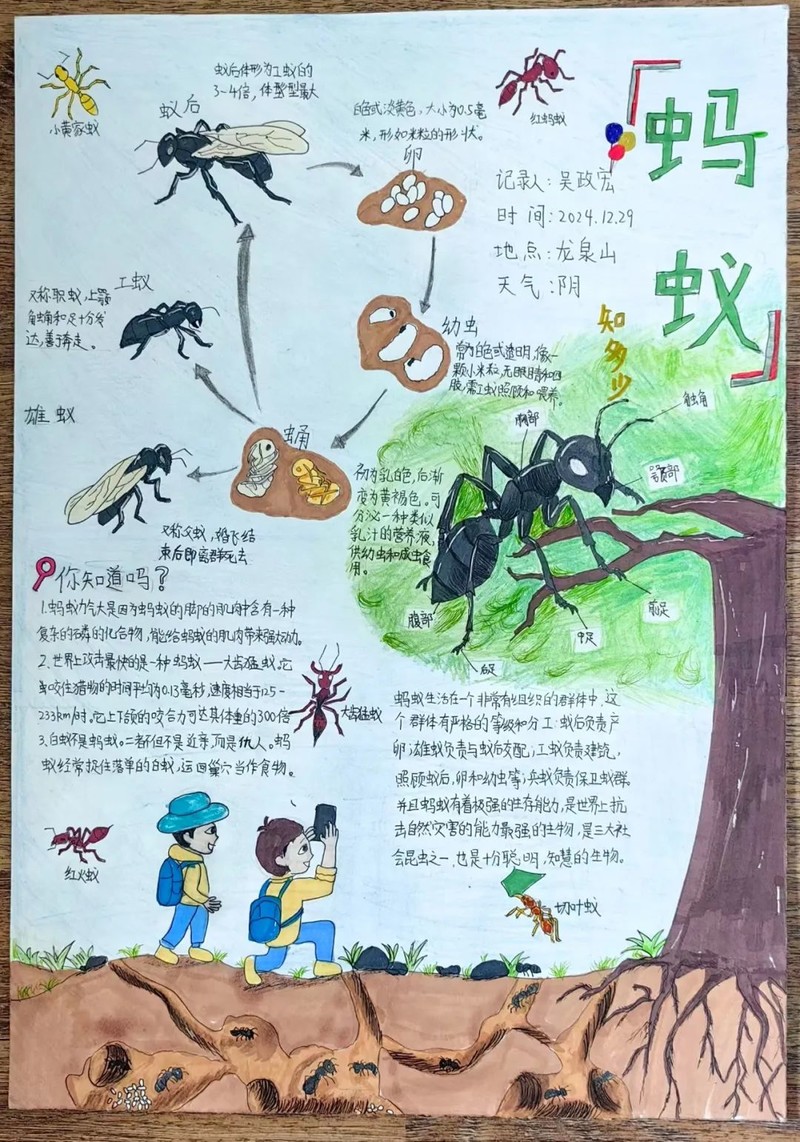 蚂
蚁
知多少
记录人：吴政宏
时 间：2024.12.29
地 点：龙泉山
天 气：阴
小黄家蚁
蚁后
蚁后体形为工蚁的
3~4倍，体型最大
红蚂蚁
白色或淡黄色，大小为0.5毫
米，形如米粒的形状。
卵
幼虫
常为白色或透明，像一
颗小米粒，无眼睛和四
肢，需工蚁照顾和喂养。
工蚁
又称职蚁，上颚
触角和足十分发
达，善于奔走。
雄蚁
又称父蚁，婚飞结
束后即离群死去
蛹
初为乳白色，后渐
变为黄褐色。可
分泌一种类似
乳汁的营养液，
供幼虫和成虫食
用。
胸部
触角
头部
腹部
后足
中足
前足
你知道吗？
1.蚂蚁力气大是因为蚂蚁的脚的肌肉中含有一种
复杂的磷的化合物，能给蚂蚁的肌肉带来强大动力。
2.世界上攻击最快的是一种蚂蚁——大齿猛蚁，它
咬住猎物的时间平均为0.13毫秒，速度相当于125-
233km/时，它上下颌的咬合力可达其体重的300倍
3.白蚁不是蚂蚁。二者不但不是近亲，而是仇人。蚂
蚁经常捉住落单的白蚁，运回巢穴当作食物。
大齿猛蚁
红火蚁
蚂蚁生活在一个非常有组织的群体中，这
个群体有严格的等级和分工：蚁后负责产
卵；雄蚁负责与蚁后交配；工蚁负责建筑，
照顾蚁后，卵和幼虫等；兵蚁负责保卫蚁群
并且蚂蚁有着极强的生存能力，是世界上抗
击自然灾害的能力最强的生物，是三大社
会昆虫之一，也是十分聪明，智慧的生物。
切叶蚁